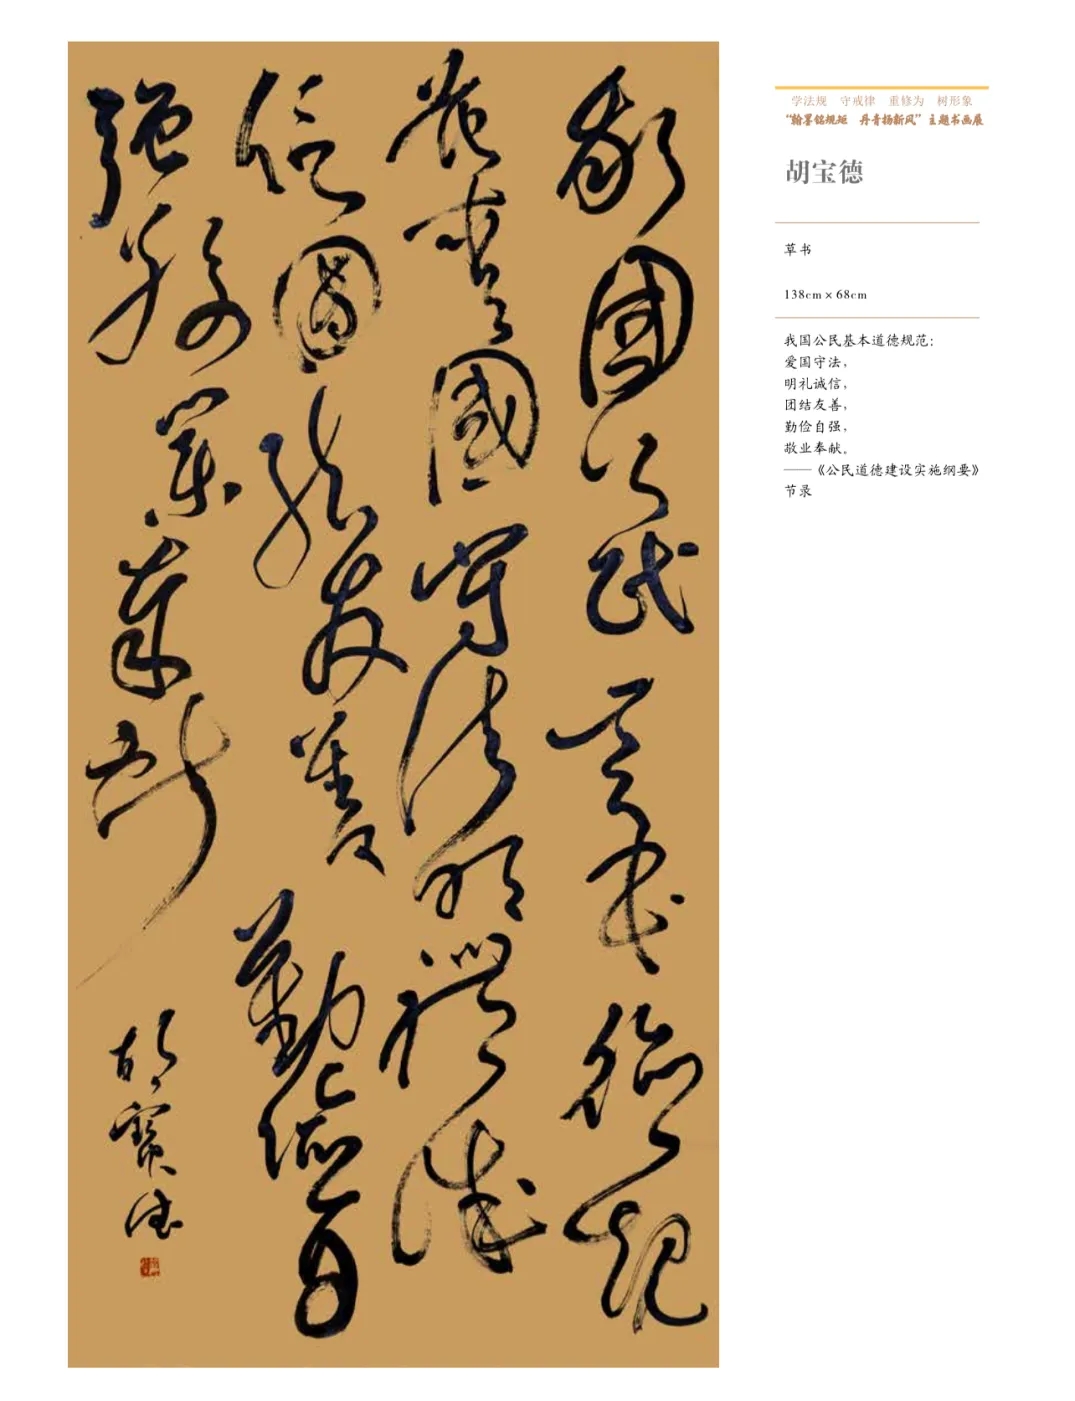 我國公民基本德規
范愛國守法明禮誠
信團結友善勤儉自
強敬業奉獻
胡寶德
学法规 守戒律 重修为 树形象
“翰墨铭规矩 丹青扬新风”主题书画展
胡宝德
草书
138cm × 68cm
我国公民基本道德规范：
爱国守法，
明礼诚信，
团结友善，
勤俭自强，
敬业奉献。
——《公民道德建设实施纲要》
节录